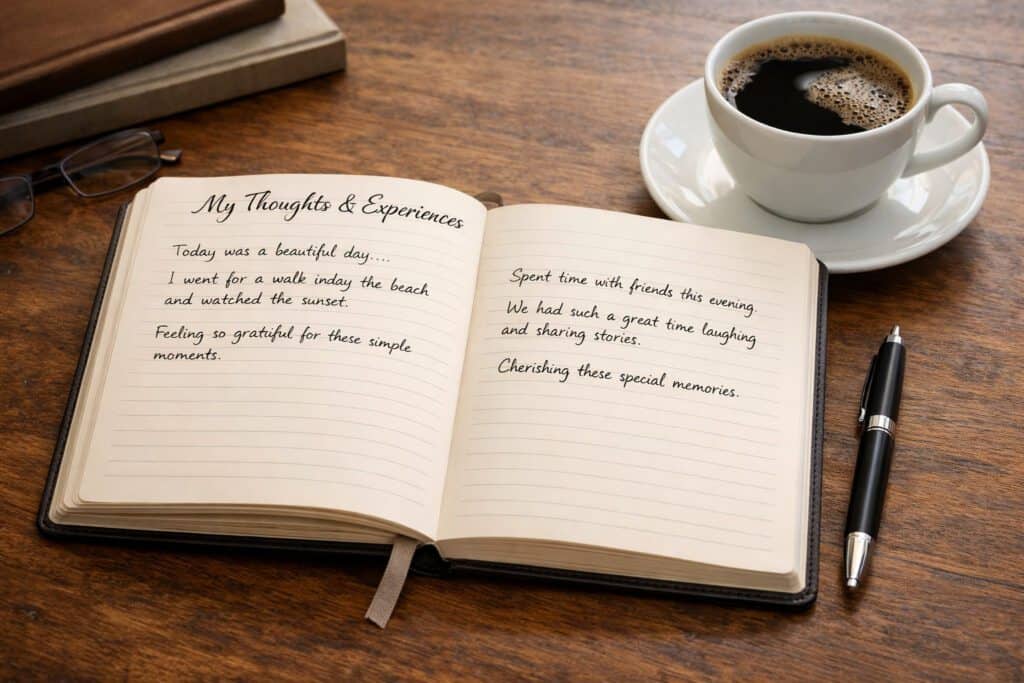 My Thoughts & Experiences
Today was a beautiful day....
I went for a walk inday the beach
and watched the sunset.
Feeling so gratiful for these simple
moments.
Spent time with friends this evening.
We had such a great time laughing
and sharing stories.
Cherishing these special memories.